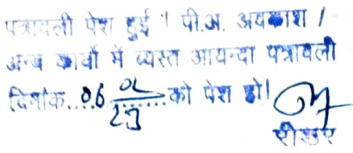 पत्रावली पेश हुई । पी.अ. अवकाश /
अन्य कार्यो में व्यस्त आयन्दा पत्रावली
दिनांक....06 02/23 ....को पेश हो।
रीडर